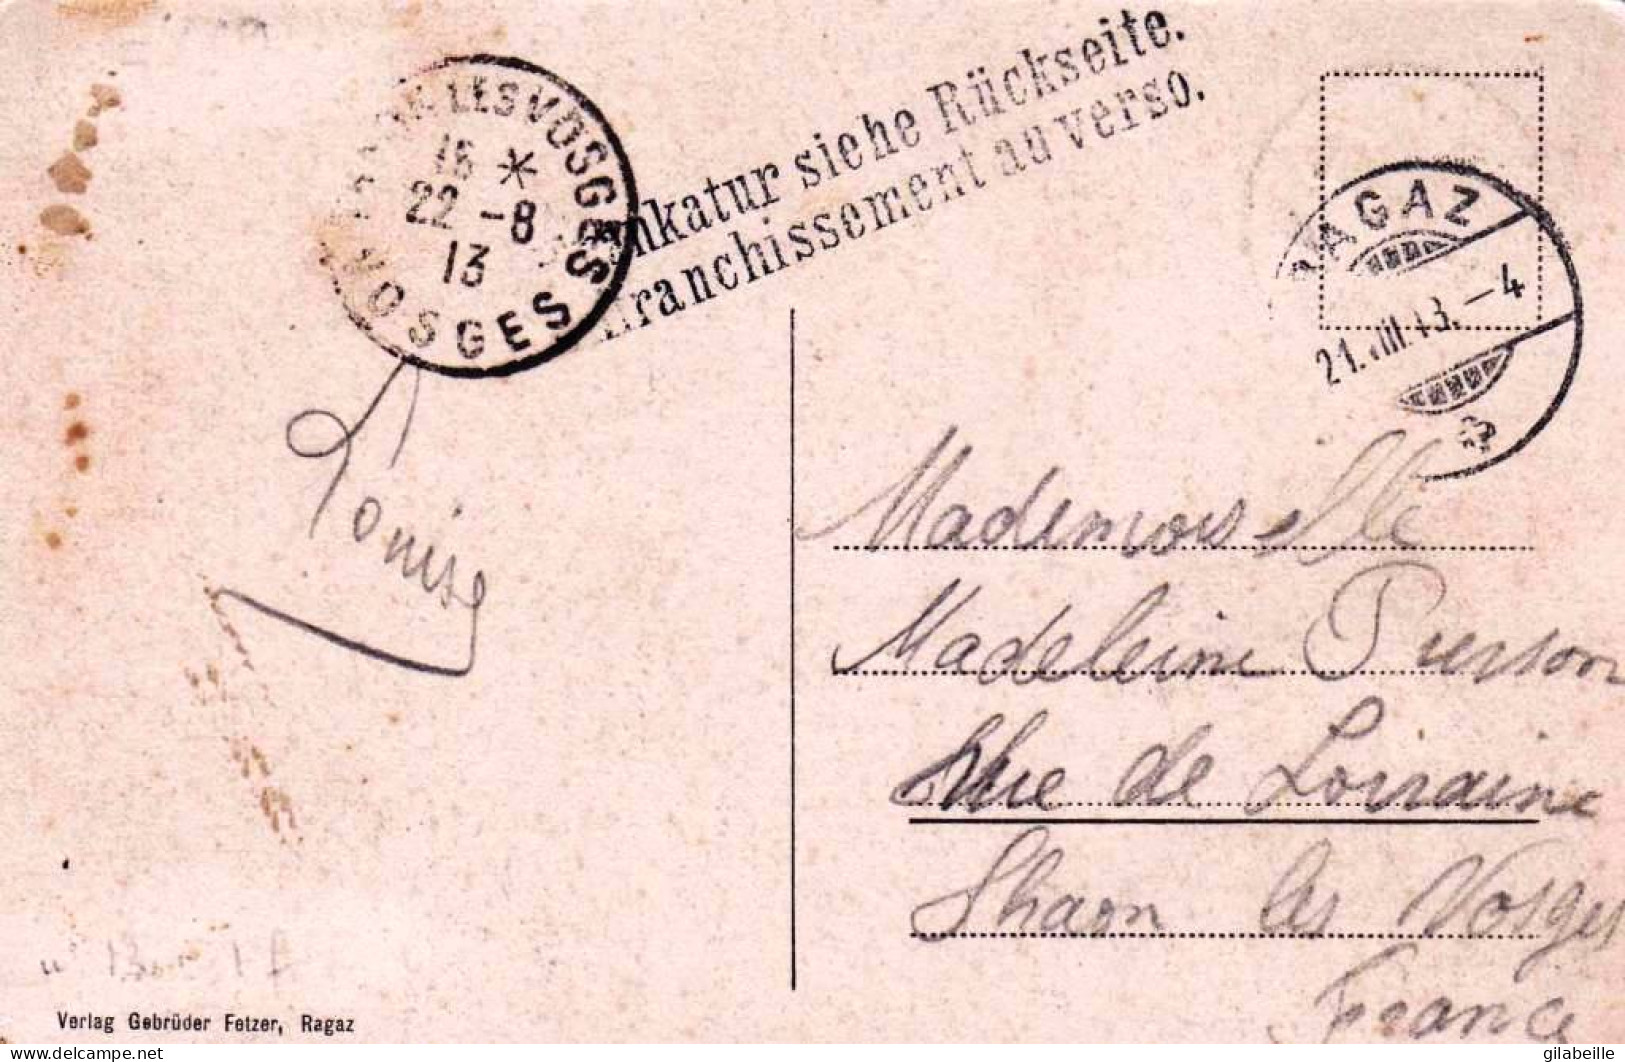 LES VOSGES
16 *
22 -8
13
VOSGES
nkatur siehe Rückseite.
franchissement au verso.
RAGAZ
21.VIII.13.–4
Louise
Mademoiselle
Madeleine Pierson
Rue de Lorraine
Thaon les Vosges
France
Verlag Gebrüder Fetzer, Ragaz
delcampe.net
gilabeille